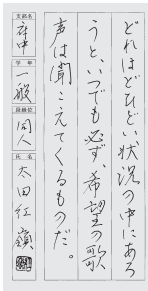 どれほどひどい状況の中にあろ
うと、いつでも必ず、希望の歌
声は聞こえてくるものだ。
支部名
府中
学年
一般
段級位
同人
氏名
太田紅嶺